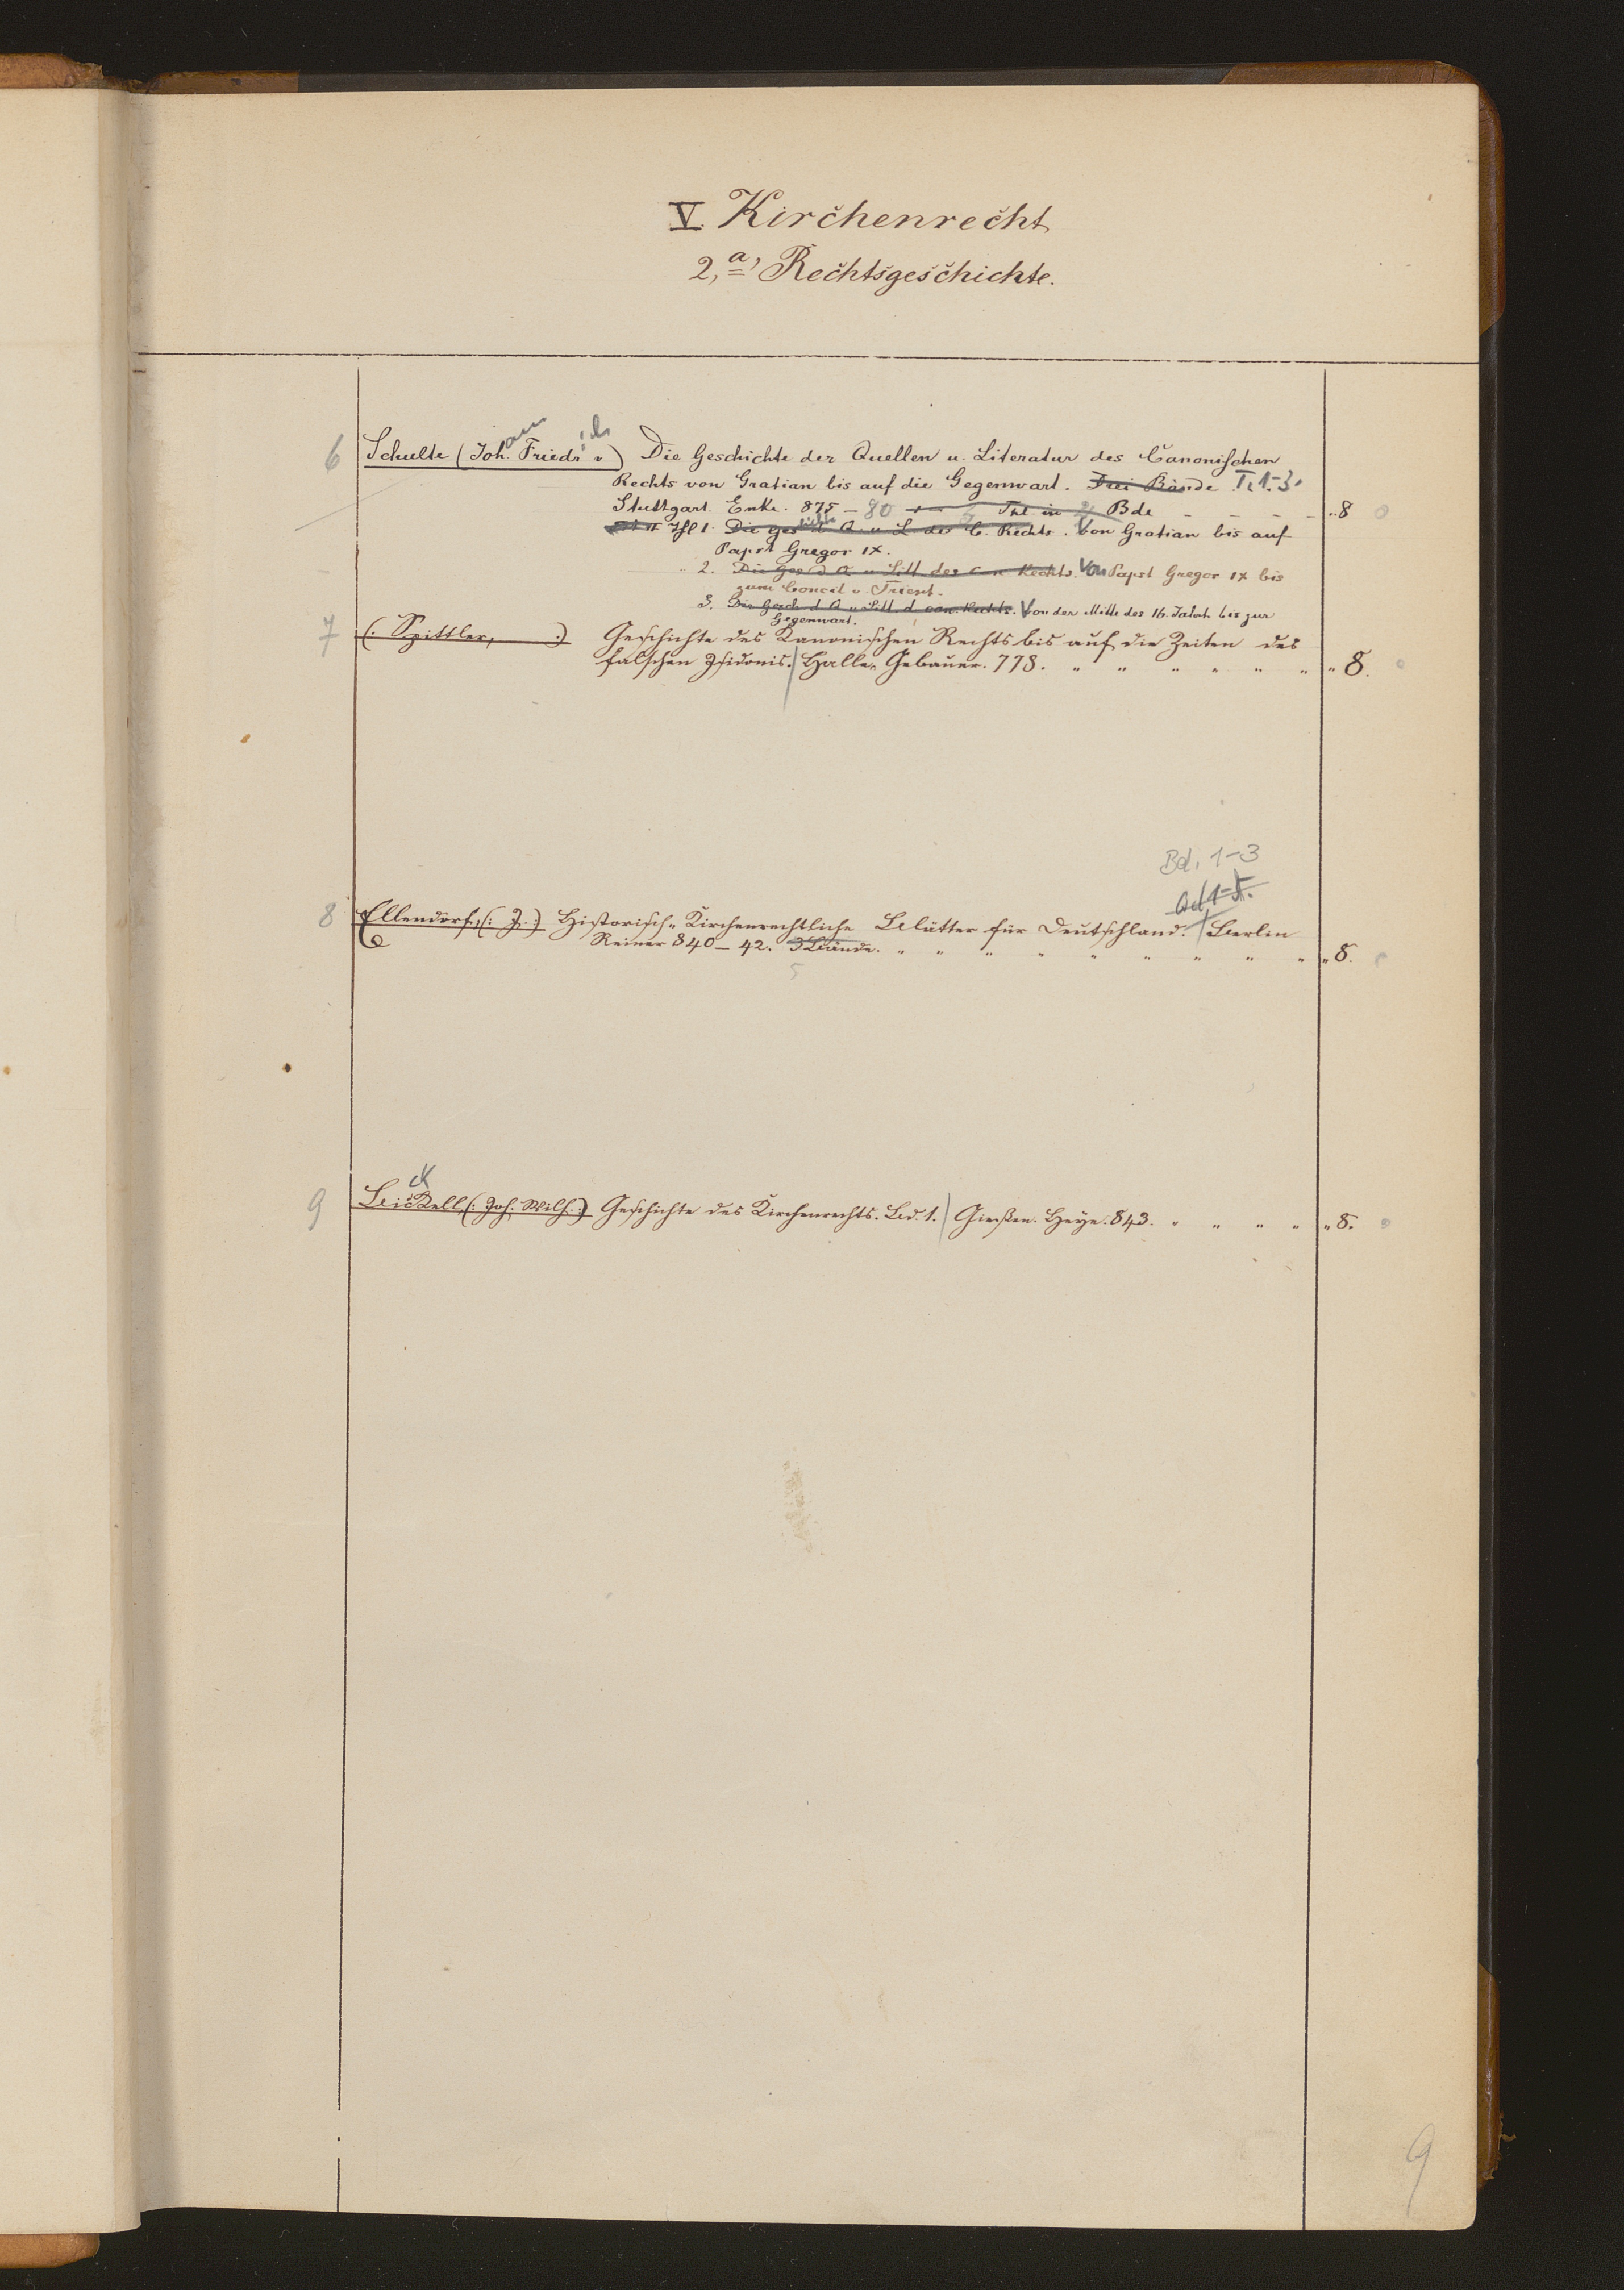 V. Kirchenrecht
2, a, Rechtsgeschichte.
6 Schulte (Johann Friedrich v) Die Geschichte der Quellen u. Literatur des Canonischen
Rechts von Gratian bis auf die Gegenwart. Drei Bände. T. 1-3.
Stuttgart. Enke. 875 – 80 Thl in 2 Bde - - - - „ 8
Thl 1. Die Geschichte d. Q. u. L. des C. Rechts. Von Gratian bis auf
Papst Gregor IX.
„ 2. Die Ges d Q u Litt des can Rechts. Von Papst Gregor IX bis
zum Concil v. Trient.
3. Die Gesch d Q u Litt. d. can. Rechts. Von der Mitte des 16. Jahrh. bis zur
Gegenwart.
7 (: Spittler, :) Geschichte des Kanonischen Rechts bis auf die Zeiten des
falschen Isidoris. Halle. Gebauer. 778. „ „ „ „ „ „ „ 8.
Bd. 1-3
8 Ellendorf, (: J. :) Historisch-Kirchenrechtliche Blätter für Deutschland. Berlin
Reimer 840 – 42. 3 Bände. „ „ „ „ „ „ „ „ „ „ 8.
5
9 Bickell (: Joh. Wilh. :) Geschichte des Kirchenrechts. Bd. 1. Gießen. Heye. 843. „ „ „ „ „ 8.
9